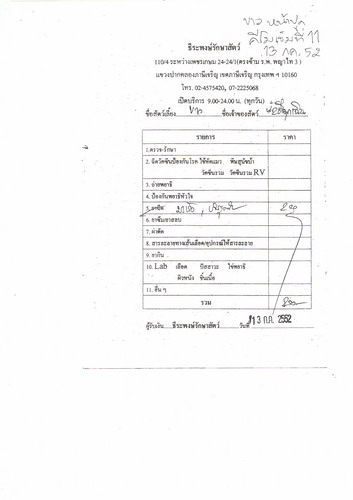 ขาว หน้าปุก
คีโมเข็มที่ 11
13 กค. 52
ธีระพงษ์รักษาสัตว์
110/4 ระหว่างเพชรเกษม 24-24/1(ตรงข้าม ร.พ. พญาไท 3 )
แขวงปากคลองภาษีเจริญ เขตภาษีเจริญ กรุงเทพ ฯ 10160
โทร. 02-4575420, 07-2225068
เปิดบริการ 9.00-24.00 น. (ทุกวัน)
ชื่อสัตว์เลี้ยง ขาว ชื่อเจ้าของสัตว์
รายการ ราคา
1.ตรวจ-รักษา
2. ฉีดวัคซีนป้องกันโรค ไข้หัดแมว พิษสุนัขบ้า
วัคซีนรวม วัคซีนรวม RV
3. ถ่ายพยาธิ
4. ป้องกันพยาธิหัวใจ
5. ยาฉีด
6. ยาซึม/ยาสลบ
7. ผ่าตัด
8. สารละลายทางเส้นเลือด/อุปกรณ์ให้สารละลาย
9. ยากิน
10. Lab เลือด ปัสสาวะ ไข่พยาธิ
ผิวหนัง ชิ้นเนื้อ
11. อื่น ๆ
รวม
ผู้รับเงิน ธีระพงษ์รักษาสัตว์ วันที่ 13 ก.ค. 2552